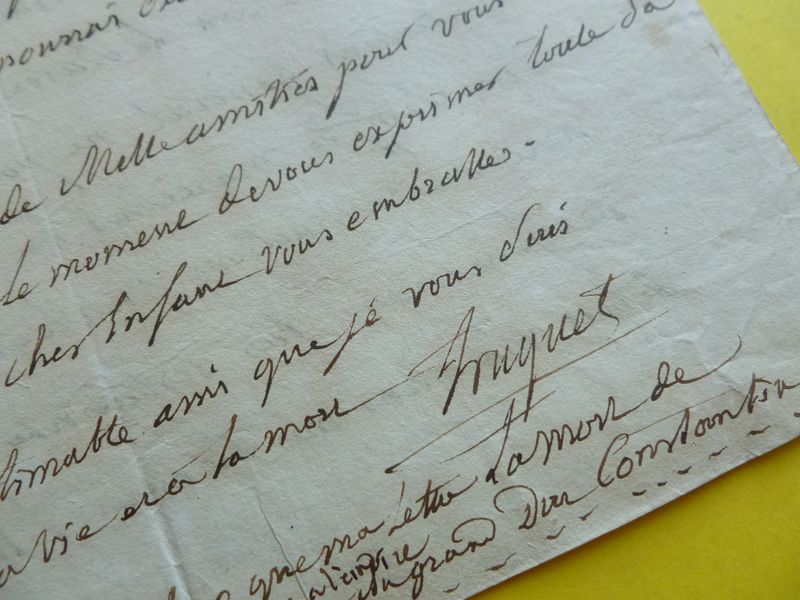 pourrais
de Mille amitiés pour vous
le moment de vous exprimer toute sa
cher Enfant vous embrasser.
timable ami que je vous suis
a vie et à la mort Truguet
que ma lettre La mort de
du grand Duc Constantin